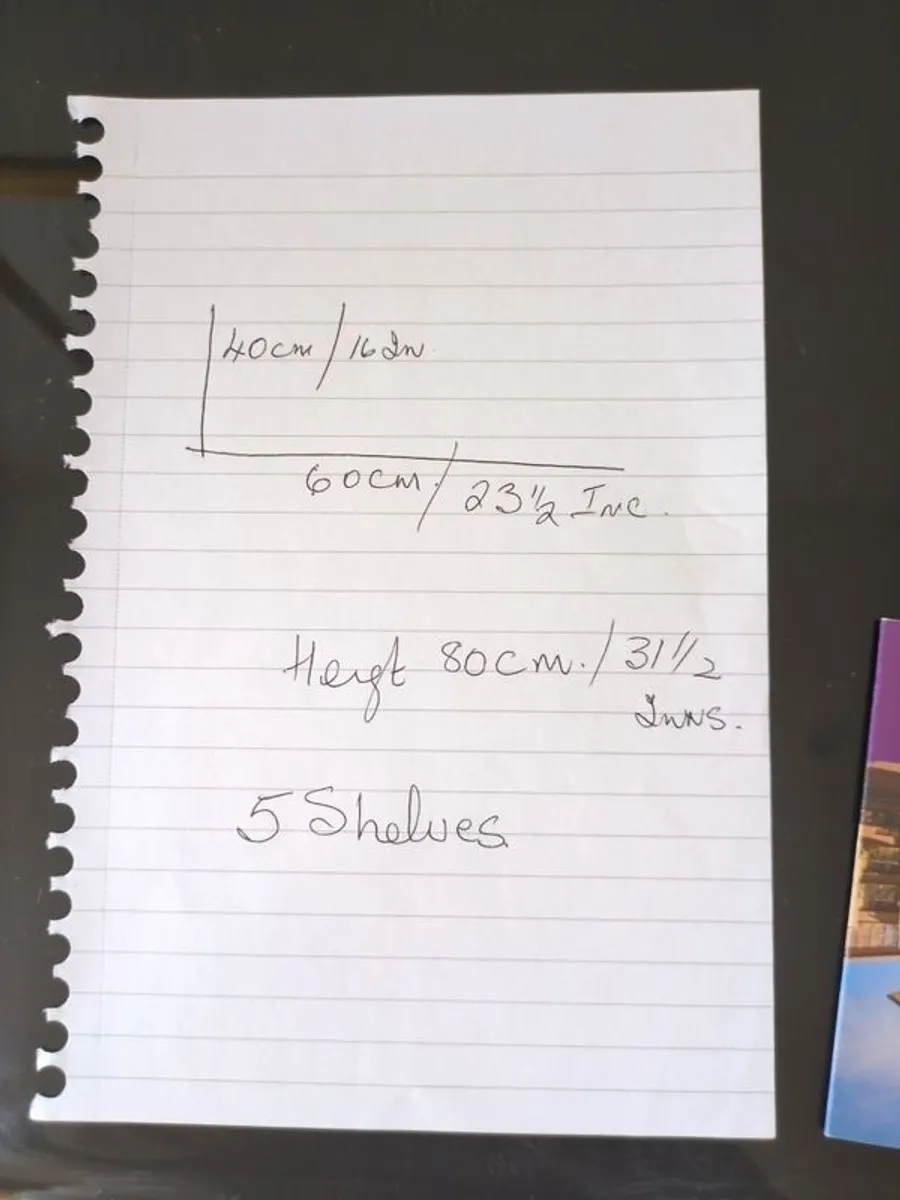 40cm / 16 In.
60cm. / 23 1/2 Inc.
Heigt 80cm. / 31 1/2
Inns.
5 Shelves